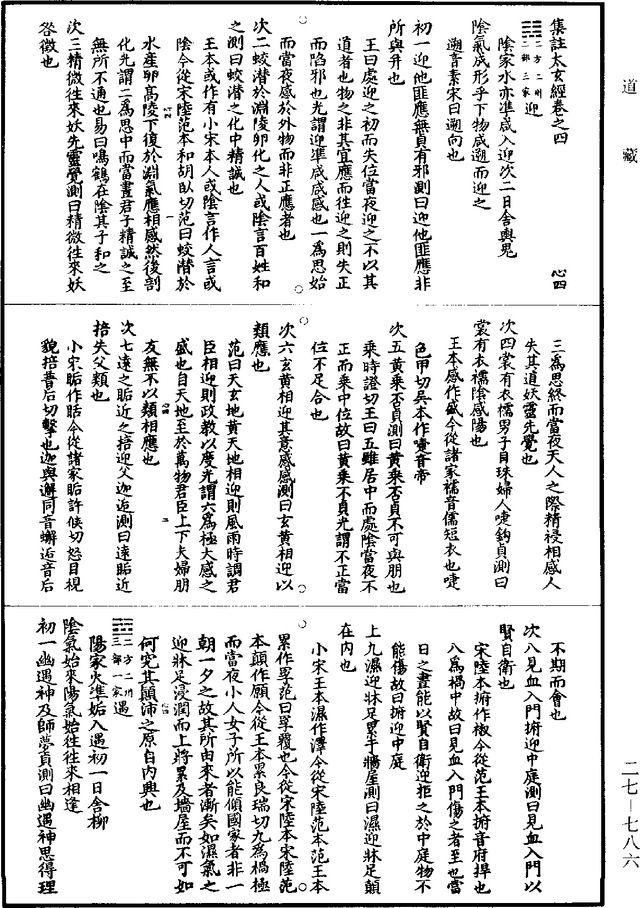 道藏
集註太玄經卷之四　心四
二方二州
一部三家
迎
陰家水亦準咸入迎次二日舍輿鬼
陰氣成形乎下物咸遡而迎之
遡音素宋曰遡向也
初一迎他匪應無貞有邪測曰迎他匪應非
所與并也
王曰處迎之初而失位當夜迎之不以其
道者也物之非其宜應而往迎之則失正
而陷邪也光謂迎準咸咸感也一為思始
而當夜感於外物而非正應者也
次二蛟潜於淵陵卵化之人或陰言百姓和
之測曰蛟潜之化中精誠也
王本或作有小宋本人或陰言作人言或
陰今從宋陸范本和胡臥切范曰蛟潜於
水產卵髙陵下復於淵氣應相感然後剖
化光謂二為思中而當晝君子精誠之至
無所不通也易曰鳴鶴在陰其子和之
次三精微往來妖先靈覺測曰精微往來妖
咎徵也
三為思終而當夜天人之際精祲相感人
失其道妖靈先覺也
次四裳有衣襦男子目珠婦人啑鈎貞測曰
裳有衣襦陰感陽也
王本感作盛今從諸家襦音儒短衣也啑
色甲切吳本作嚏音帝
次五黄乘否貞測曰黄乘否貞不可與朋也
乘時證切王曰五雖居中而處陰當夜不
正而乘中位故曰黄乘不貞光謂不正當
位不足合也
次六玄黄相迎其意感感測曰玄黄相迎以
類應也
范曰天玄地黄天地相迎則風雨時調君
臣相迎則政教以度光謂六為極大感之
盛也自天地至於萬物君臣上下夫婦朋
友無不以類相應也
次七遠之眐近之掊迎父迦逅測曰遠眐近
掊失父類也
小宋眐作䀨今從諸家眐許候切怒目視
貌掊普后切擊也迦與邂同音蠏逅音后
不期而會也
次八見血入門捬迎中庭測曰見血入門以
賢自衛也
宋陸本捬作椒今從范王本捬音府捍也
八為禍中故曰見血入門傷之者至也當
日之晝能以賢自衛迎拒之於中庭物不
能傷故曰捬迎中庭
上九濕迎牀足累乎墻屋測曰濕迎牀足顛
在内也
小宋王本濕作澤今從宋陸范本范王本
累作㝮范曰㝮覆也今從宋陸本宋陸范
本顛作願今從王本累良瑞切九為禍極
而當夜小人女子所以能傾國家者非一
朝一夕之故其所由來者漸矣如濕氣之
迎牀足浸潤而上將累及墻屋而不可如
何究其顛沛之原自内興也
二方二州
三部一家
遇
陽家火準姤入遇初一日舍柳
陰氣始來陽氣始往往來相逢
初一幽遇神及師夢貞測曰幽遇神思得理
二七—七八六